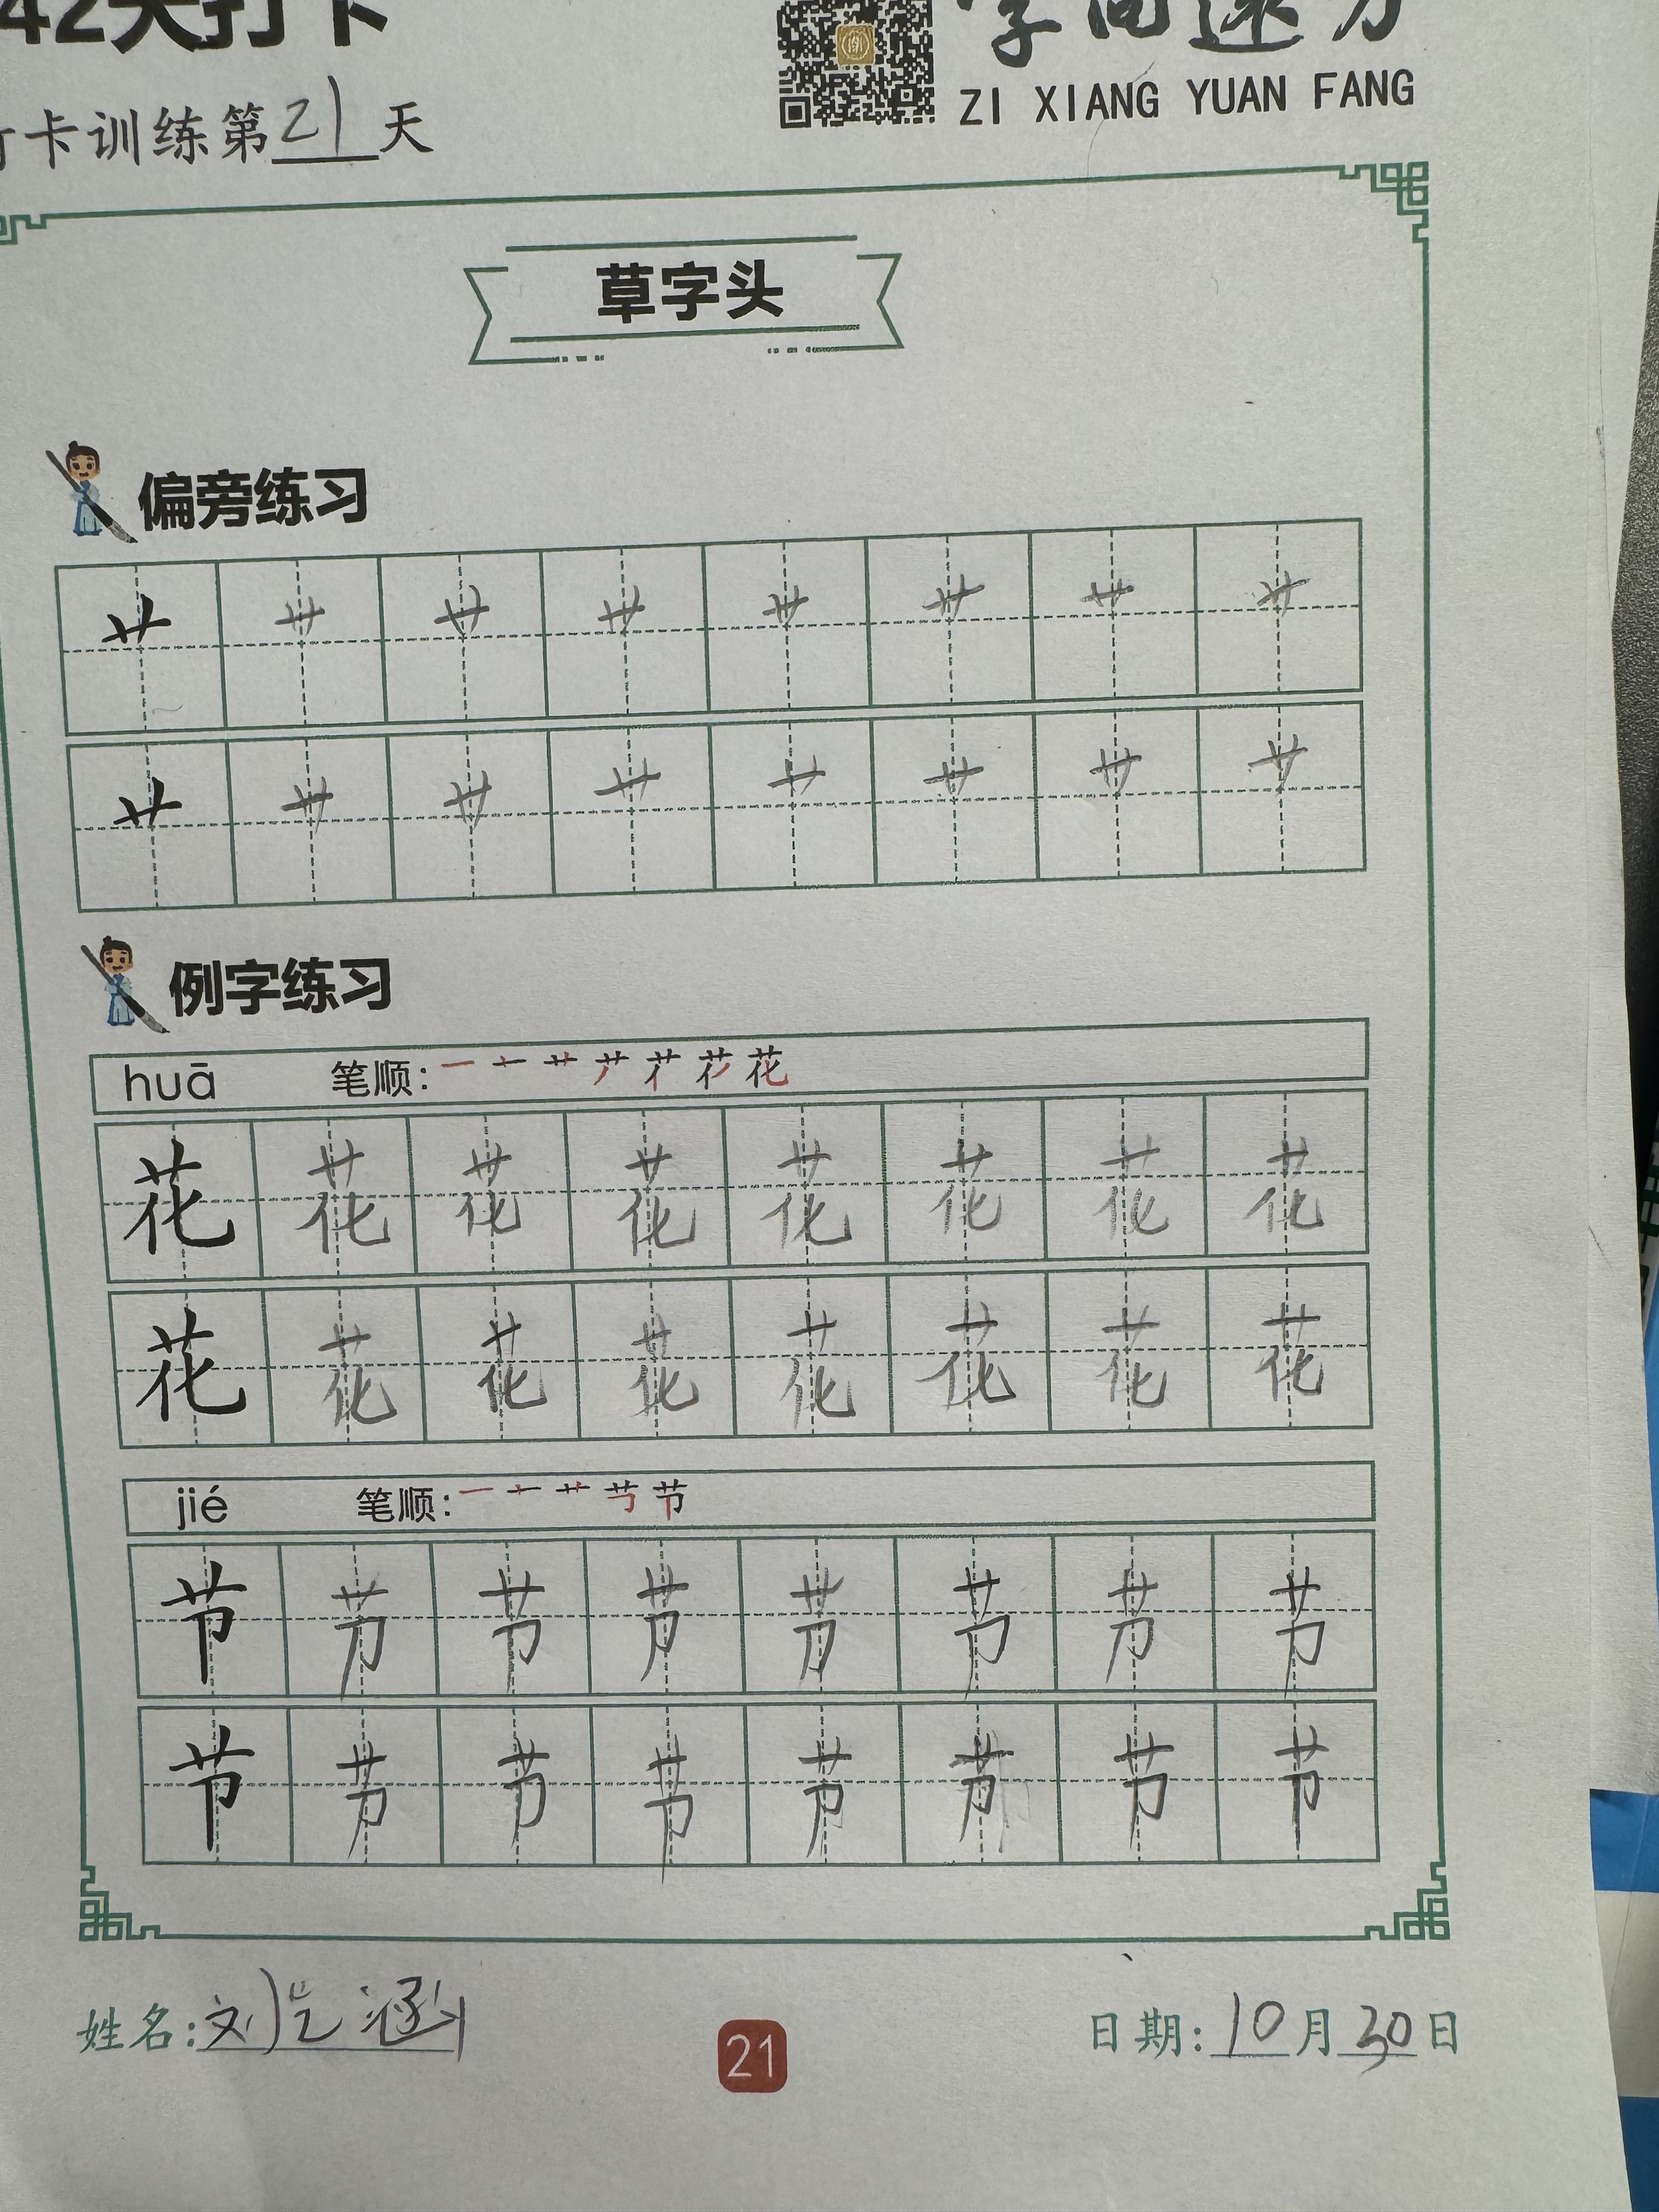 42天打卡
字向远方
ZI XIANG YUAN FANG
打卡训练第21天
草字头
偏旁练习
艹 艹 艹 艹 艹 艹 艹 艹
艹 艹 艹 艹 艹 艹 艹 艹
例字练习
huā 笔顺: 花
花 花 花 花 花 花 花 花
花 花 花 花 花 花 花 花
jié 笔顺: 节
节 节 节 节 节 节 节 节
节 节 节 节 节 节 节 节
姓名:刘艺涵 21 日期:10月30日